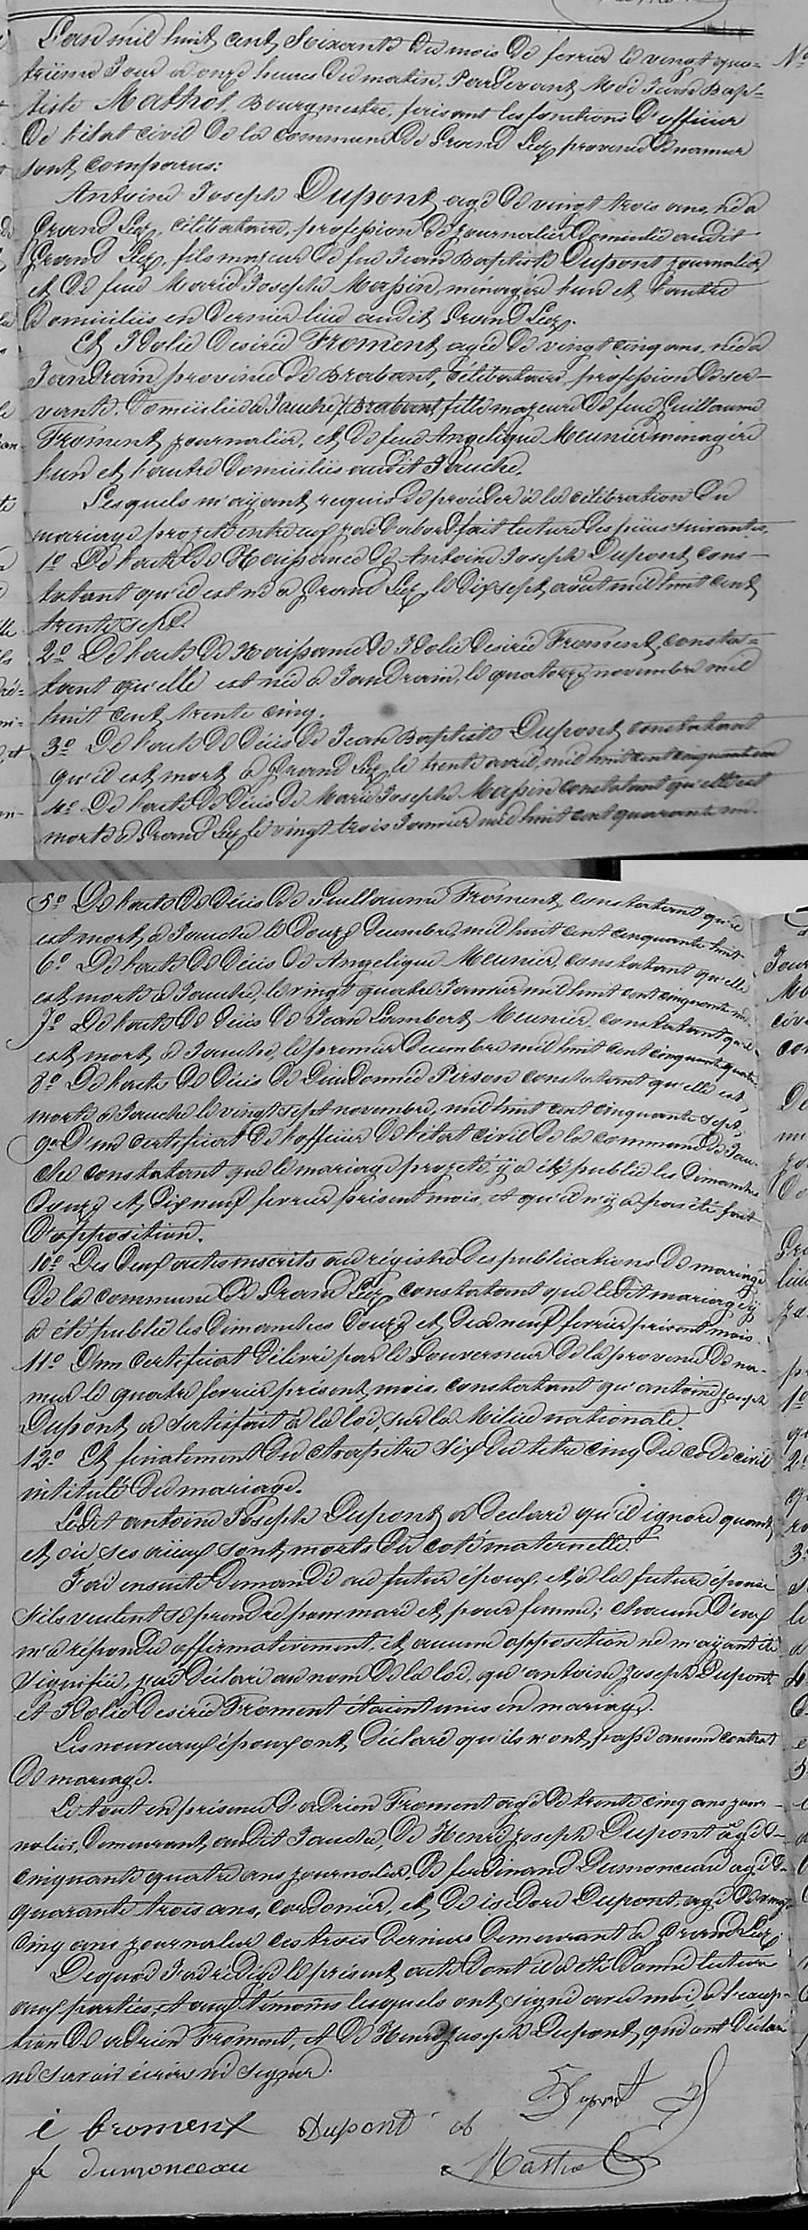 L'an mil huit cent soixante du mois de fevrier le vingt qua=
trième jour à onze heures du matin, Pardevant Moi Jean Bap=
tiste Mathot, Bourgmestre, faisant les fonctions d'officier
de l'état civil de la commune de Grand Leez, province de namur
sont comparus:
Antoine Joseph Dupont, agé de vingt trois ans, né à
Grand Leez, célibataire, profession de journalier domicilié audit
Grand Leez, fils majeur de feu Jean Baptiste Dupont journalier
et de feue Marie Josephe Massin, menagère l'un et l'autre
domiciliés en dernier lieu audit Grand Leez.
Et Idolie Desirée Froment, agée de vingt cinq ans, née à
Jandrain, province de Brabant, célibataire, profession de ser-
vante, domiciliée à Jauche, Brabant fille majeure de feu Guillaume
Froment, journalier, et de feue Angelique Meunier menagère
l'un et l'autre domiciliés audit Jauche.
Lesquels m'ayant requis de procéder à la célébration du
mariage projeté entre eux, j'ai d'abord fait lecture des pièces suivantes.
1º De l'acte de Naissance de Antoine Joseph Dupont, cons-
tatant qu'il est né à Grand Leez, le dix sept août mil huit cent
trente sept.
2º De l'acte de Naissance de Idolie Desirée Froment, consta=
tant qu'elle est née à Jandrain, le quatorze novembre mil
huit cent trente cinq.
3º De l'acte de décès de Jean Baptiste Dupont, constatant
qu'il est mort à Grand Leez, le trente avril mil huit cent cinquante un
4º De l'acte de décès de Marie Josephe Massin constatant qu'elle est
morte à Grand Leez, le vingt trois Janvier mil huit cent quarante un.
5º De l'acte de décès de Guillaume Froment, constatant qu'il
est mort à Jauche le douze decembre, mil huit cent cinquante huit
6º De l'acte de décès de Angelique Meunier, constatant qu'elle
est morte à Jauche, le vingt quatre Janvier mil huit cent cinquante
7º De l'acte de décès de Jean Lambert Meunier, constatant qu'il
est mort à Jauche, le premier decembre mil huit cent cinquante quatre.
8º De l'acte de décès de Dieudonnée Pirson constatant qu'elle est
morte à Jauche le vingt sept novembre, mil huit cent cinquante sept.
9º D'un certificat de l'officier de l'état civil de la commune de Jau-
che constatant que le mariage projeté y a été publié les dimanches
douze et dix neuf fevrier présent mois, et qu'il n'y a pas été fait
d'opposition.
10º Des deux actes inscrits au régistre des publications de mariage
de la commune de Grand Leez constatant que ledit mariage y
a été publié les dimanches douze et dix neuf fevrier présent mois.
11º D'un certificat délivré par le Gouverneur de la province de na-
mur le quatre fevrier présent mois, constatant qu'antoine joseph
Dupont, a satisfait à la loi, sur la Milice nationale.
12º Et finalement du chapitre six du titre cinq du code civil
intitulé du mariage.
Ledit antoine Joseph Dupont, a declaré qu'il ignore quand
et où ses aïeux sont morts du coté maternelle.
J'ai ensuite demandé au futur époux, et à la future épouse
s'ils veulent se prendre pour mari et pour femme; chacun d'eux
m'a répondu affirmativement, et aucune opposition ne m'ayant été
signifiée, j'ai déclaré au nom de la loi, qu'antoine Joseph Dupont,
et Idolie Desirée Froment étaient unis en mariage.
Les nouveaux époux ont, déclaré qu'ils n'ont, passé aucun contrat
de mariage.
Le tout en présence d'adrien Froment agé de trente cinq ans jour-
nalier, demeurant audit Jauche, de Henri joseph Dupont agé de
cinquante quatre ans journalier, de ferdinand Dumonceau agé de
quarante trois ans, cordonier, et de isidore Dupont, agé de vingt
cinq ans journalier ces trois derniers demeurant à Grand Leez.
De quoi J'ai rédigé le présent acte dont il a été donné lecture
aux parties, et aux témoins lesquels ont, signé avec moi, à l'excep-
tion de adrien Froment, et de Henri Joseph Dupont, qui ont déclaré
ne savoir écrire ni signer.
Dupont
i froment Dupont
f dumonceau Mathot